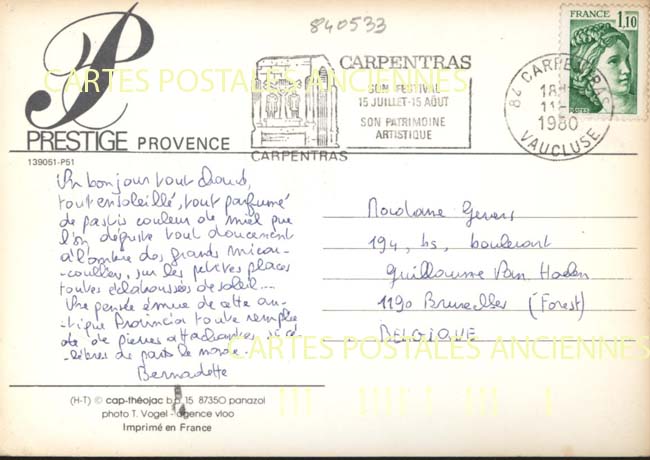 840533
FRANCE
1,10
CARPENTRAS
SON FESTIVAL
15 JUILLET-15 AOUT
SON PATRIMOINE
ARTISTIQUE
CARPENTRAS
84 CARPENTRAS
18H
11-
1980
VAUCLUSE
CARTES POSTALES ANCIENNES
P
PRESTIGE PROVENCE
139051-P51
Un bonjour tout chaud,
tout ensoleillé, tout parfumé
de pastis couleur de miel que
l'on déguste tout doucement
à l'ombre des grands micou-
-coulliers, sur les petites places
toutes éclaboussées de soleil....
Une pensée émue de cette an-
-tique Provincia toute remplie
de pierres attachantes, si cé-
-lèbres de part le monde.
Bernadette
Madame Gevers
194, bs, boulevart
Guillaume Van Haelen
1190 Bruxelles (Forest)
BELGIQUE
CARTES POSTALES ANCIENNES
(H-T) © cap-théojac b.p. 15 87350 panazol
photo T. Vogel - agence vloo
Imprimé en France